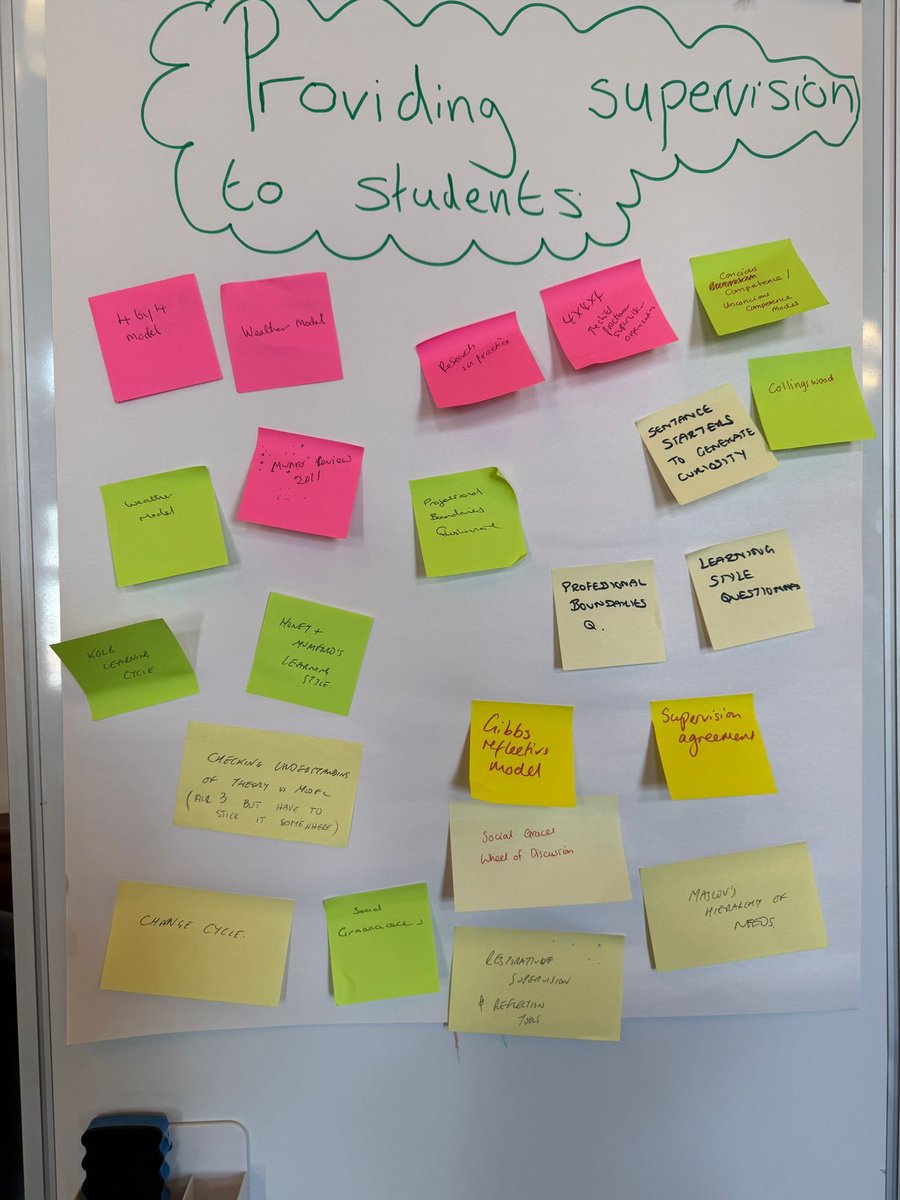 Providing supervision
to students.
4 by 4
Model
Weather Model
Research
in practice
4x4x4
The child
practitioner
supervisor
organisation
Concious
Competence /
Unconcious
Competence
Model
Collingswood
SENTANCE
STARTERS
TO GENERATE
CURIOSITY
Weather
Model
Munro Review
2011
Professional
Boundaries
Questionnaire
PROFESIONAL
BOUNDARIES
Q.
LEARNING
STYLE
QUESTIONNAIRE
KOLB
LEARNING
CYCLE
HONEY +
MUMFORD'S
LEARNING
STYLE.
Gibbs
reflective
model
Supervision
agreement
CHECKING UNDERSTANDING
OF THEORY VS MODEL
(ALL 3 BUT HAVE TO
STICK IT SOMEWHERE)
Social Graces
Wheel of Discussion
MASLOW'S
HIERARCHY OF
NEEDS
CHANGE CYCLE.
Social
RESTORATIVE
SUPERVISION
& REFLECTION
TOOLS